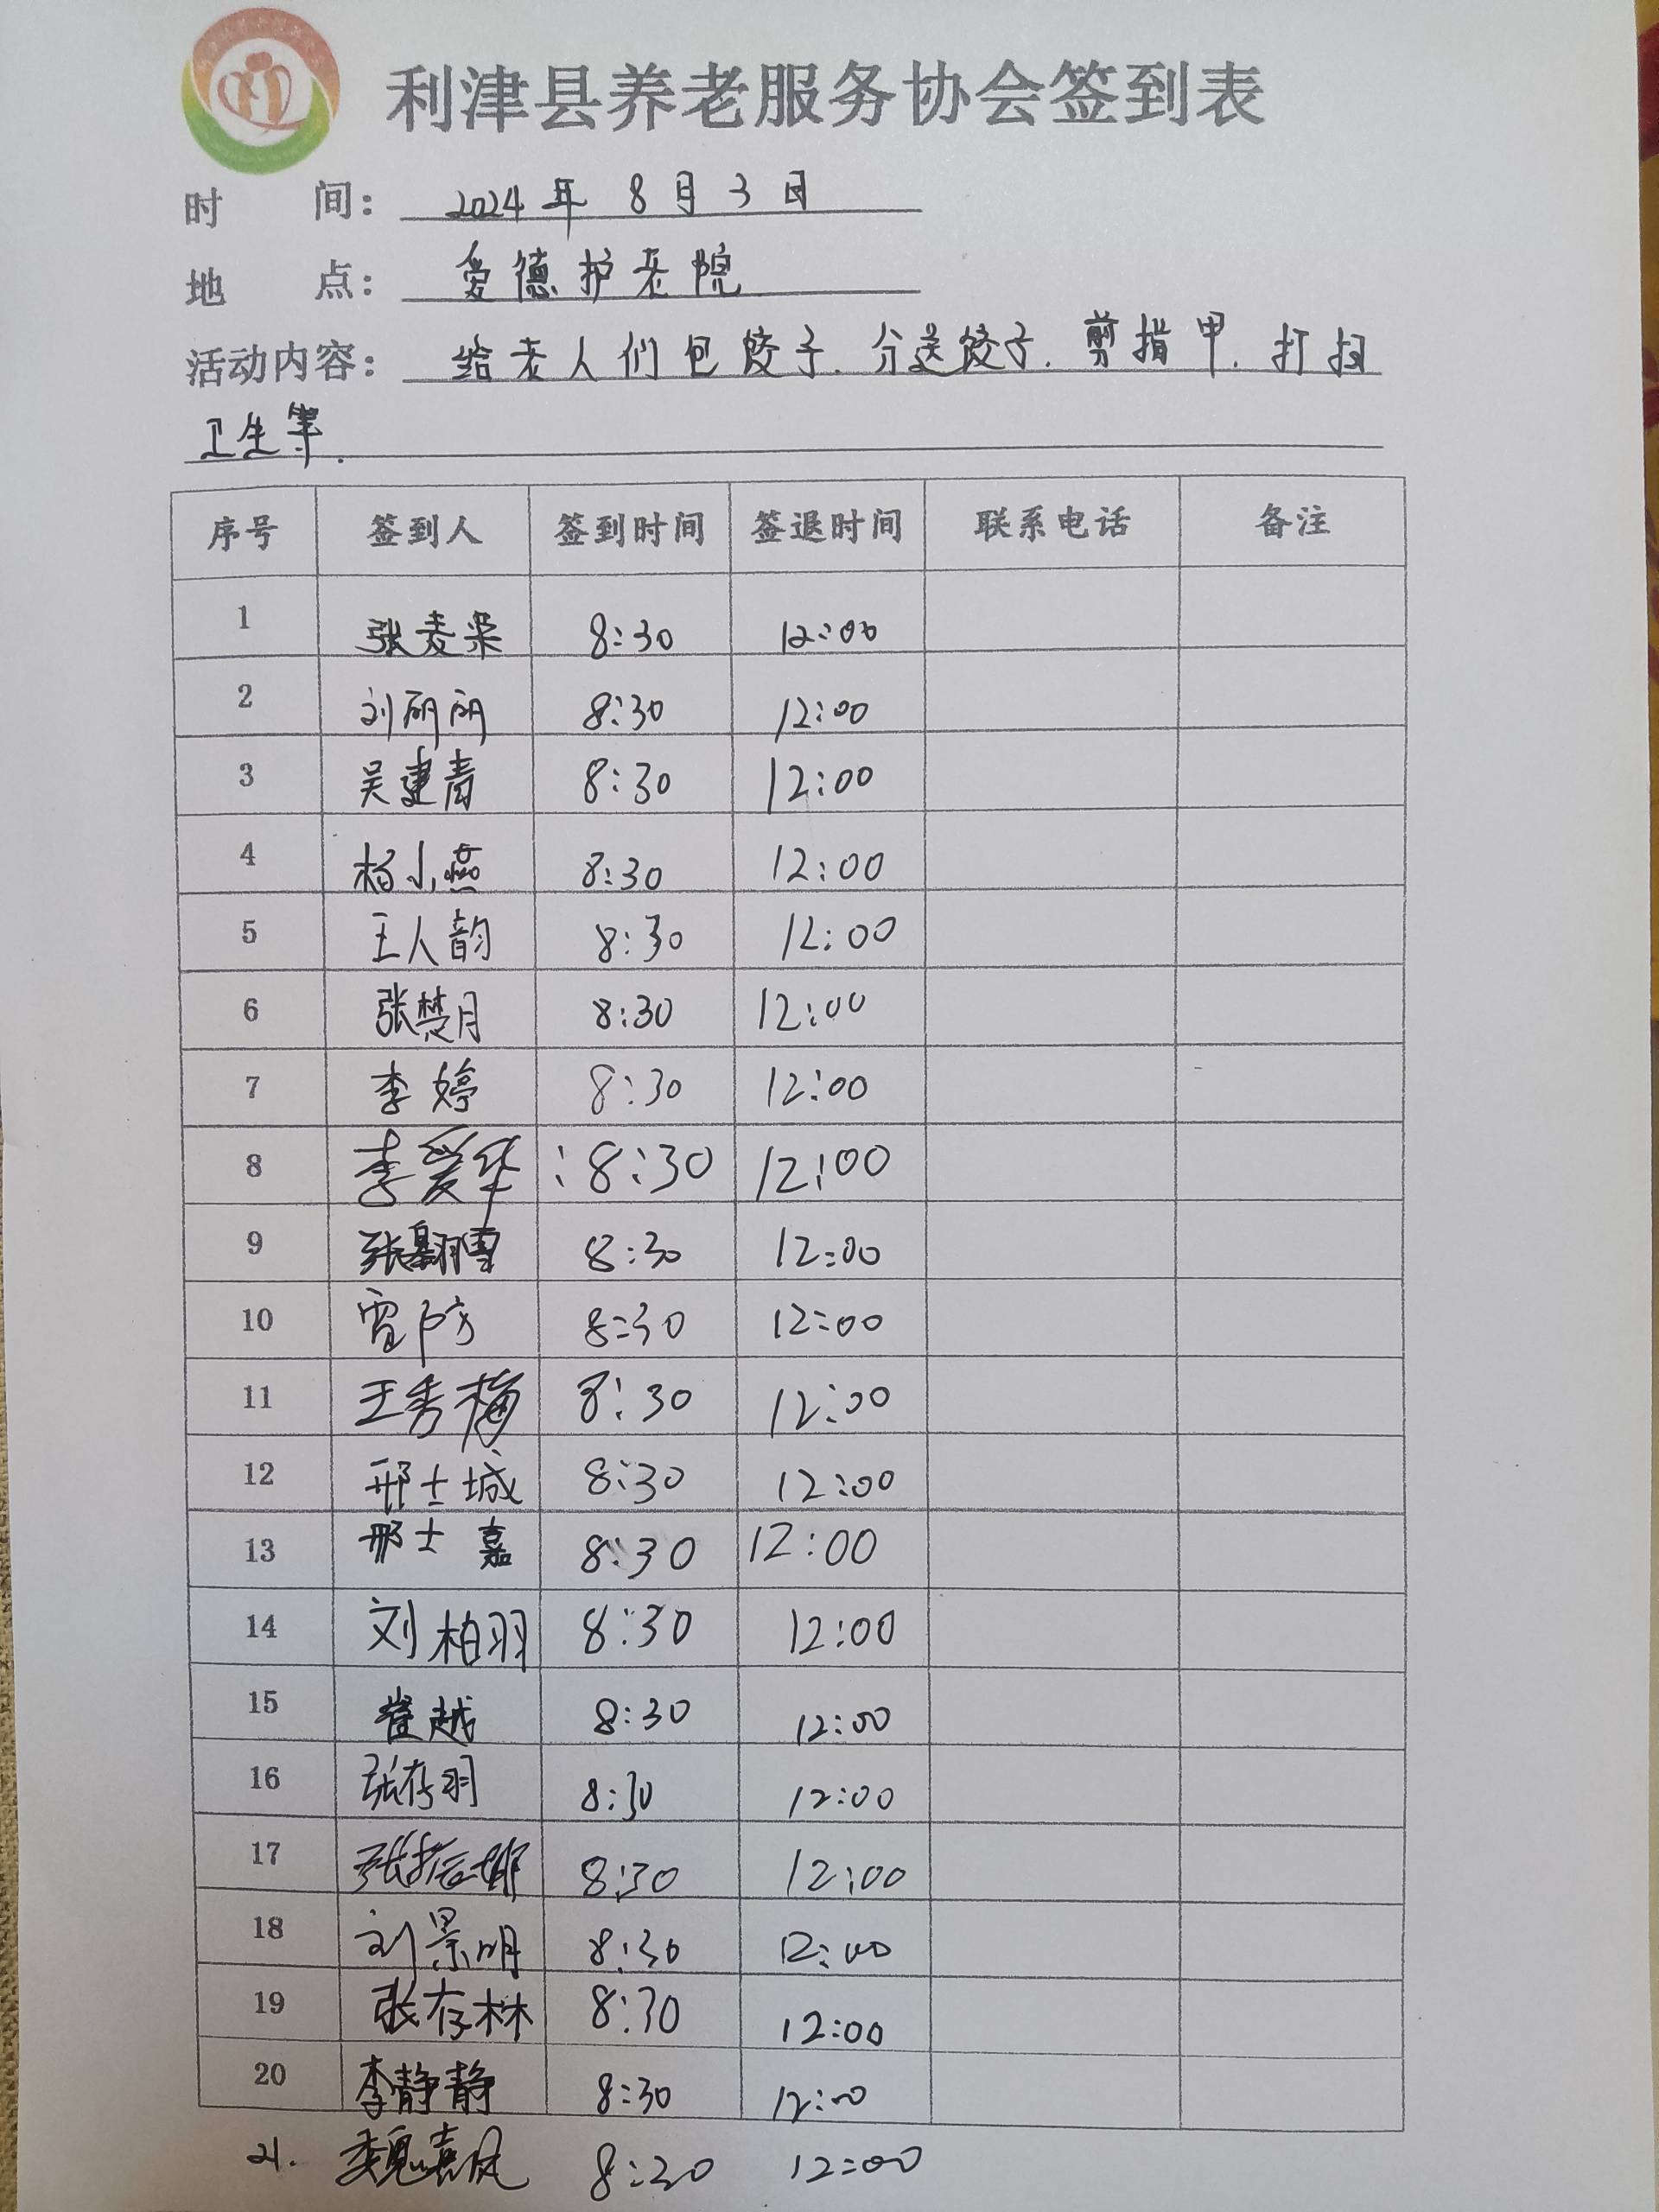 利津县养老服务协会签到表
时 间: 2024年 8月 3日
地 点: 爱德护老院
活动内容: 给老人们包饺子.分送饺子.剪指甲.打扫
卫生等.
序号 签到人 签到时间 签退时间 联系电话 备注
1 张麦梁 8:30 12:00
2 刘丽丽 8:30 12:00
3 吴建青 8:30 12:00
4 杨小燕 8:30 12:00
5 王人韵 8:30 12:00
6 张楚月 8:30 12:00
7 李婷 8:30 12:00
8 李爱华 :8:30 12:00
9 张翾雪 8:30 12:00
10 8:30 12:00
11 王秀梅 8:30 12:00
12 邢士城 8:30 12:00
13 邢士嘉 8:30 12:00
14 刘柏羽 8:30 12:00
15 崔越 8:30 12:00
16 张存羽 8:30 12:00
17 张振娜 8:30 12:00
18 刘景明 8:30 12:00
19 张存林 8:30 12:00
20 李静静 8:30 12:00
21. 魏嘉成 8:20 12:00